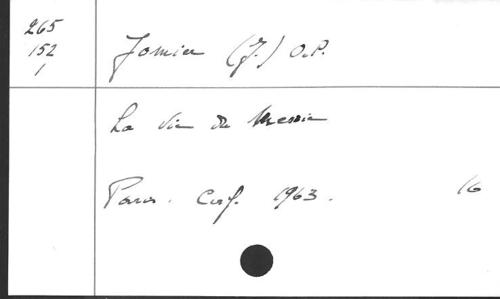 265
152
1
Jomier (J.) O.P.
La Vie du Messie
Paris. Cerf. 1963. 16